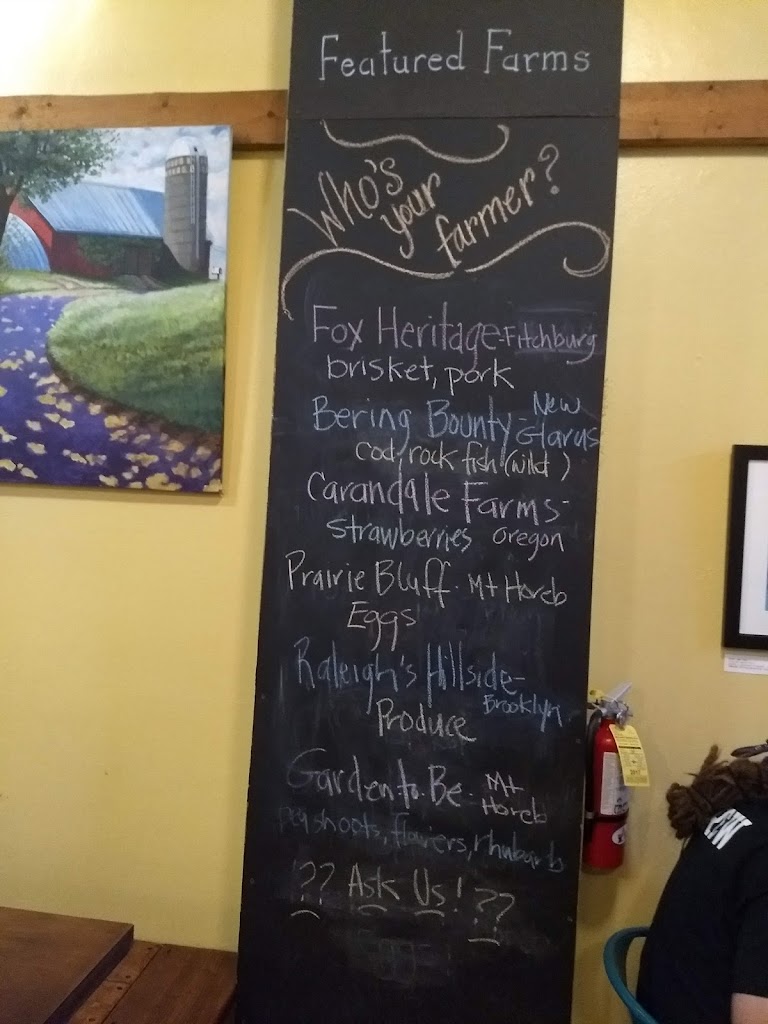 Featured Farms
Who's
your
farmer?
Fox Heritage-Fitchburg
brisket, pork
Bering Bounty- New
Glarus
Cod, rock fish (wild)
Carandale Farms-
Strawberries Oregon
Prairie Bluff- Mt Horeb
Eggs
Raleigh's Hillside-
Brooklyn
Produce
Garden to Be- Mt
Horeb
pea shoots, flowers, rhubarb
!?? Ask Us! ??